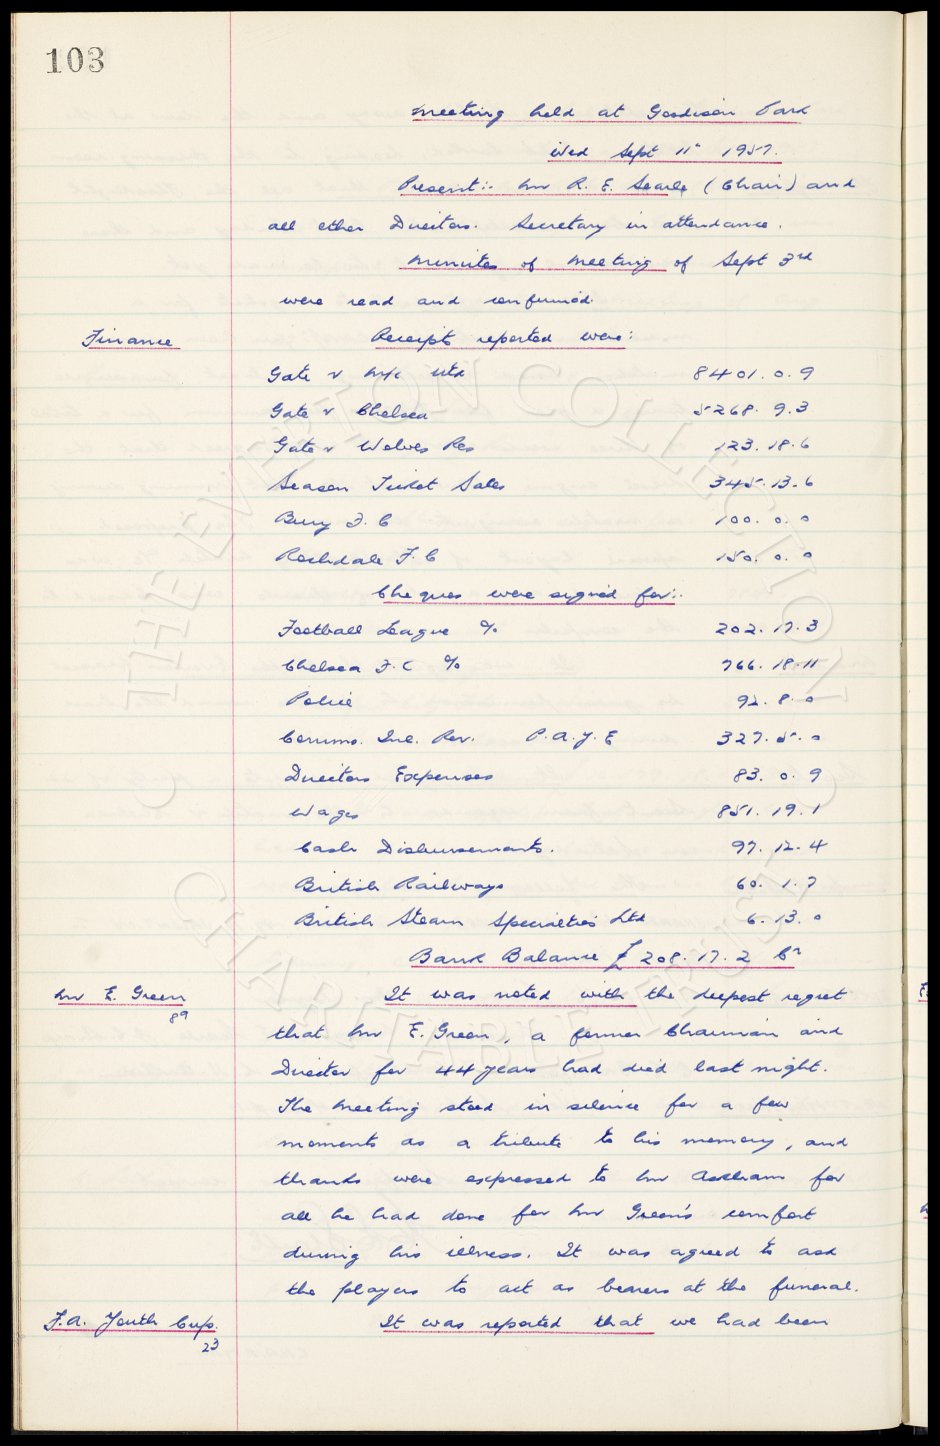 103
Meeting held at Goodison Park
Wed Sept 11th 1957.
Present:- Mr R. E. Searle (Chair) and
all other Directors. Secretary in attendance.
Minutes of Meeting of Sept 3rd
were read and confirmed.
Finance
Receipts reported were:
Gate v M/c Utd 8401. 0. 9
Gate v Chelsea 5268. 9. 3
Gate v Wolves Res 123. 18. 6
Season Ticket Sales 345. 13. 6
Bury F. C 100. 0. 0
Rochdale F. C 150. 0. 0
Cheques were signed for:-
Football League % 202. 17. 3
Chelsea F. C % 766. 18. 11
Police 92. 8. 0
Comms. Inc. Rev. P.A.Y.E 327. 5. 0
Directors Expenses 83. 0. 9
Wages 851. 19. 1
Cash Disbursements. 97. 12. 4
British Railways 60. 1. 7
British Steam Specialties Ltd 6. 13. 0
Bank Balance £208. 17. 2 Cr
Mr E. Green
89
It was noted with the deepest regret
that Mr E. Green, a former Chairman and
Director for 44 years had died last night.
The Meeting stood in silence for a few
moments as a tribute to his memory, and
thanks were expressed to Mr Askham for
all he had done for Mr Green's comfort
during his illness. It was agreed to ask
the players to act as bearers at the funeral.
F.A. Youth Cup.
23
It was reported that we had been
THE EVERTON COLLECTION
CHARITABLE TRUST